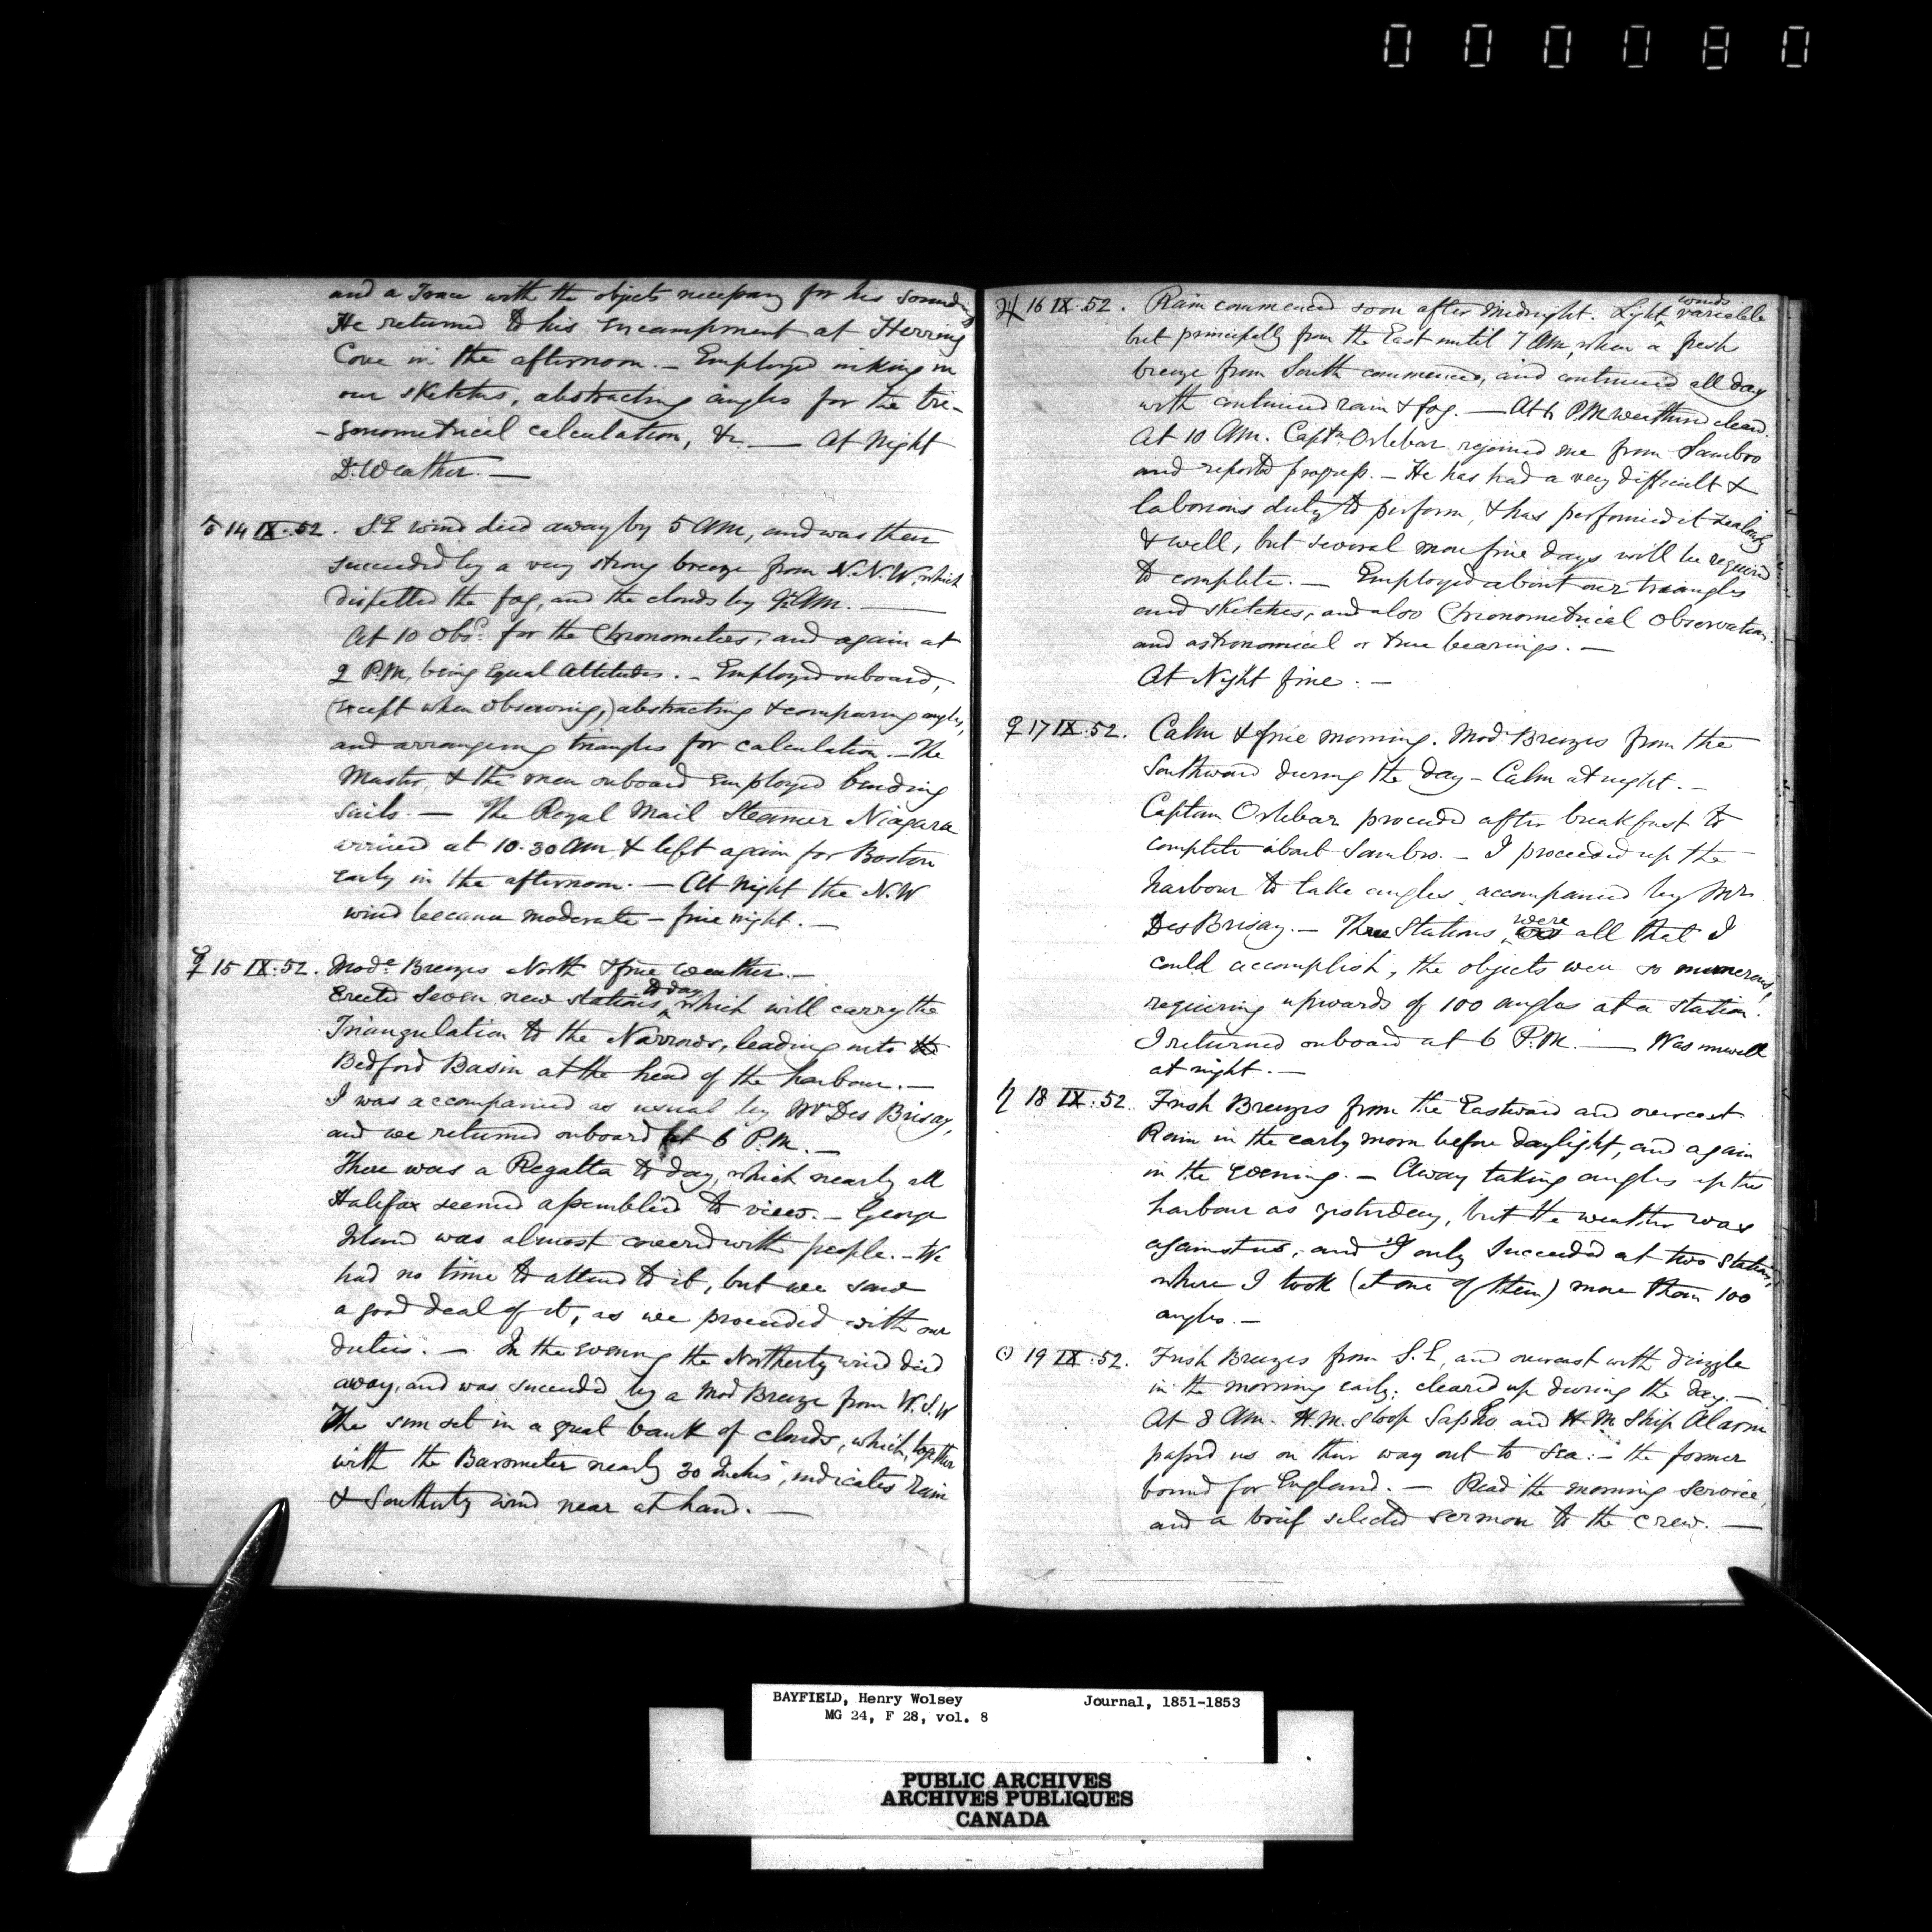 000080
and a Trace with the objects necessary for his sounding
He returned to his encampment at Herring
Cove in the afternoon. – Employed inking in
our sketches, abstracting angles for the tri-
-gonometrical calculation, &c. — At Night
Do. Weather. —
♂ 14 IX. 52. S.E wind died away by 5 AM, and was then
succeeded by a very strong breeze from N.N.W, which
dispelled the fog, and the clouds by AM. —
At 10 Obsd. for the Chronometers, and again at
2 P.M, being Equal Altitudes. – Employed onboard,
(except when observing,) abstracting & comparing angles,
and arranging triangles for calculation. – The
Master, & the men onboard employed bending
sails. — The Royal Mail Steamer Niagara
arrived at 10.30 AM & left again for Boston
early in the afternoon. — At Night the N.W
wind became moderate – fine night. —
☿ 15 IX. 52. Mode. Breezes North & fine weather. —
Erected Seven new stations to day, which will carry the
Triangulation to the Narrows, leading into the
Bedford Basin at the head of the harbour. —
I was accompanied as usual by Mr Des Brisay,
and we returned onboard at 6 P.M. —
There was a Regatta to day, which nearly all
Halifax seemed assembled to view. – George
Island was almost covered with people. – We
had no time to attend to it, but we saw
a good deal of it, as we proceeded with our
duties. — In the evening the Northerly wind died
away, and was succeeded by a Mod Breeze from W.S.W
The sun set in a great bank of clouds, which, together
with the Barometer nearly 30 Inches, indicates Rain
& Southerly wind near at hand. —
♃ 16 IX. 52. Rain commenced soon after Midnight. Light winds variable
but principally from the East until 7 AM, when a fresh
breeze from South commenced, and continued all day
with continued rain & fog. — At 6 P.M weather cleared.
At 10 AM. Captn Orlebar rejoined me from Sambro
and reported progress. – He has had a very difficult &
laborious duty to perform, & has performed it zealously
& well, but several more fine days will be required
to complete. — Employed about our triangles
and sketches, and also Chronometrical Observations.
and astronomical or true bearings. —
At Night fine. —
♀ 17 IX. 52. Calm & fine morning. Mod Breezes from the
Southward during the day – Calm at night. —
Captain Orlebar proceeded after breakfast to
complete about Sambro. – I proceeded up the
harbour to take angles, accompanied by Mr
Des Brisay. – Three Stations were all that I
could accomplish, the objects were so numerous,
requiring upwards of 100 angles at a station.
I returned onboard at 6 P.M. — Was unwell
at night. —
♄ 18 IX. 52. Fresh Breezes from the Eastward and overcast
Rain in the early morn before daylight, and again
in the evening. – Away taking angles up the
harbour as yesterday, but the weather was
against us, and I only succeeded at two Stations,
where I took (at one of them) more than 100
angles. —
☉ 19 IX. 52. Fresh Breezes from S.E, and overcast with drizzle
in the morning early; cleared up during the day. —
At 8 AM. H.M. Sloop Sappho and H.M. Ship Alarm
passed us on their way out to sea: – the former
bound for England. — Read the morning service,
and a brief selected sermon to the crew. —
BAYFIELD, Henry Wolsey Journal, 1851-1853
MG 24, F 28, vol. 8
PUBLIC ARCHIVES
ARCHIVES PUBLIQUES
CANADA